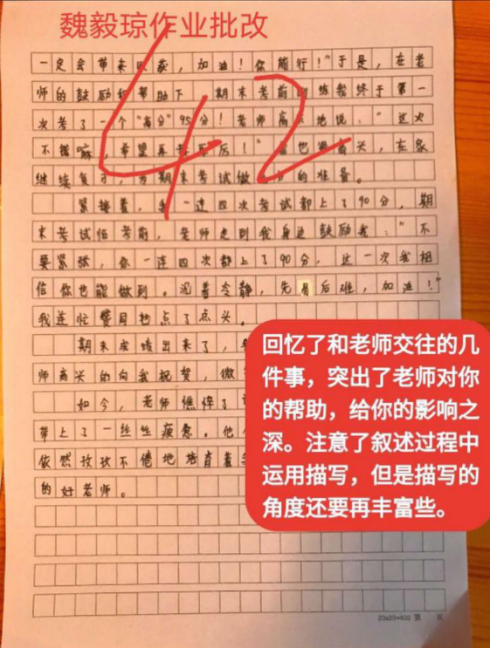 魏毅琼作业批改
42
一定会带来收获，加油！你能行！”于是，在老
师的鼓励和帮助下，期末考前训练我终于第一
次考了一个“高分”95分！老师高兴地说：“这次
不错嘛，希望再接再厉！”我也点头，在家
继续复习，为期末考试做的准备。
紧接着，我一连四次考试都上了90分，期
末考试临考前，老师走到我身边鼓励我：“不
要紧张，你一连四次都上了90分，这一次我相
信你也能做到。沉着冷静，先易后难，加油！”
我连忙点了点头。
期末成绩出来了，
师高兴的向我祝贺，微
如今，老师
带上了一丝丝疲惫。他
依然孜孜不倦地培育着
的好老师。
回忆了和老师交往的几
件事，突出了老师对你
的帮助，给你的影响之
深。注意了叙述过程中
运用描写，但是描写的
角度还要再丰富些。
20x20=400 第 页